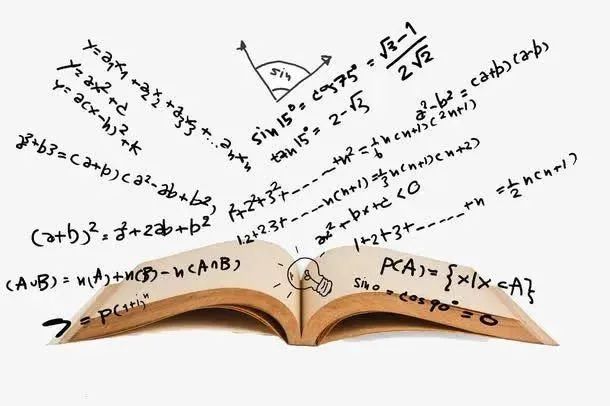 y = a₁x₁ + a₂x₂ + a₃x₃ + ... aₙxₙ
y = ax² + c
y = a(x-h)² + k
sin
sin 15° = cos 75° = √3-1 / 2√2
tan 15° = 2-√3
a²-b² = (a+b)(a-b)
a³+b3 = (a+b)(a²-ab+b²)
1²+2²+3²+ ...... +n² = 1/6 n(n+1)(2n+1)
1.2+2.3+ ...... n(n+1) = 1/3 n(n+1)(n+2)
(a+b)² = a²+2ab+b²
ax²+bx+c<0
1+2+3+ ........ +n = 1/2 n(n+1)
(A∪B) = n(A)+n(B)-n(A∩B)
P(A) = {x|x⊂A}
sin 0 = cos 90° = 0
= P(1+i)ⁿ